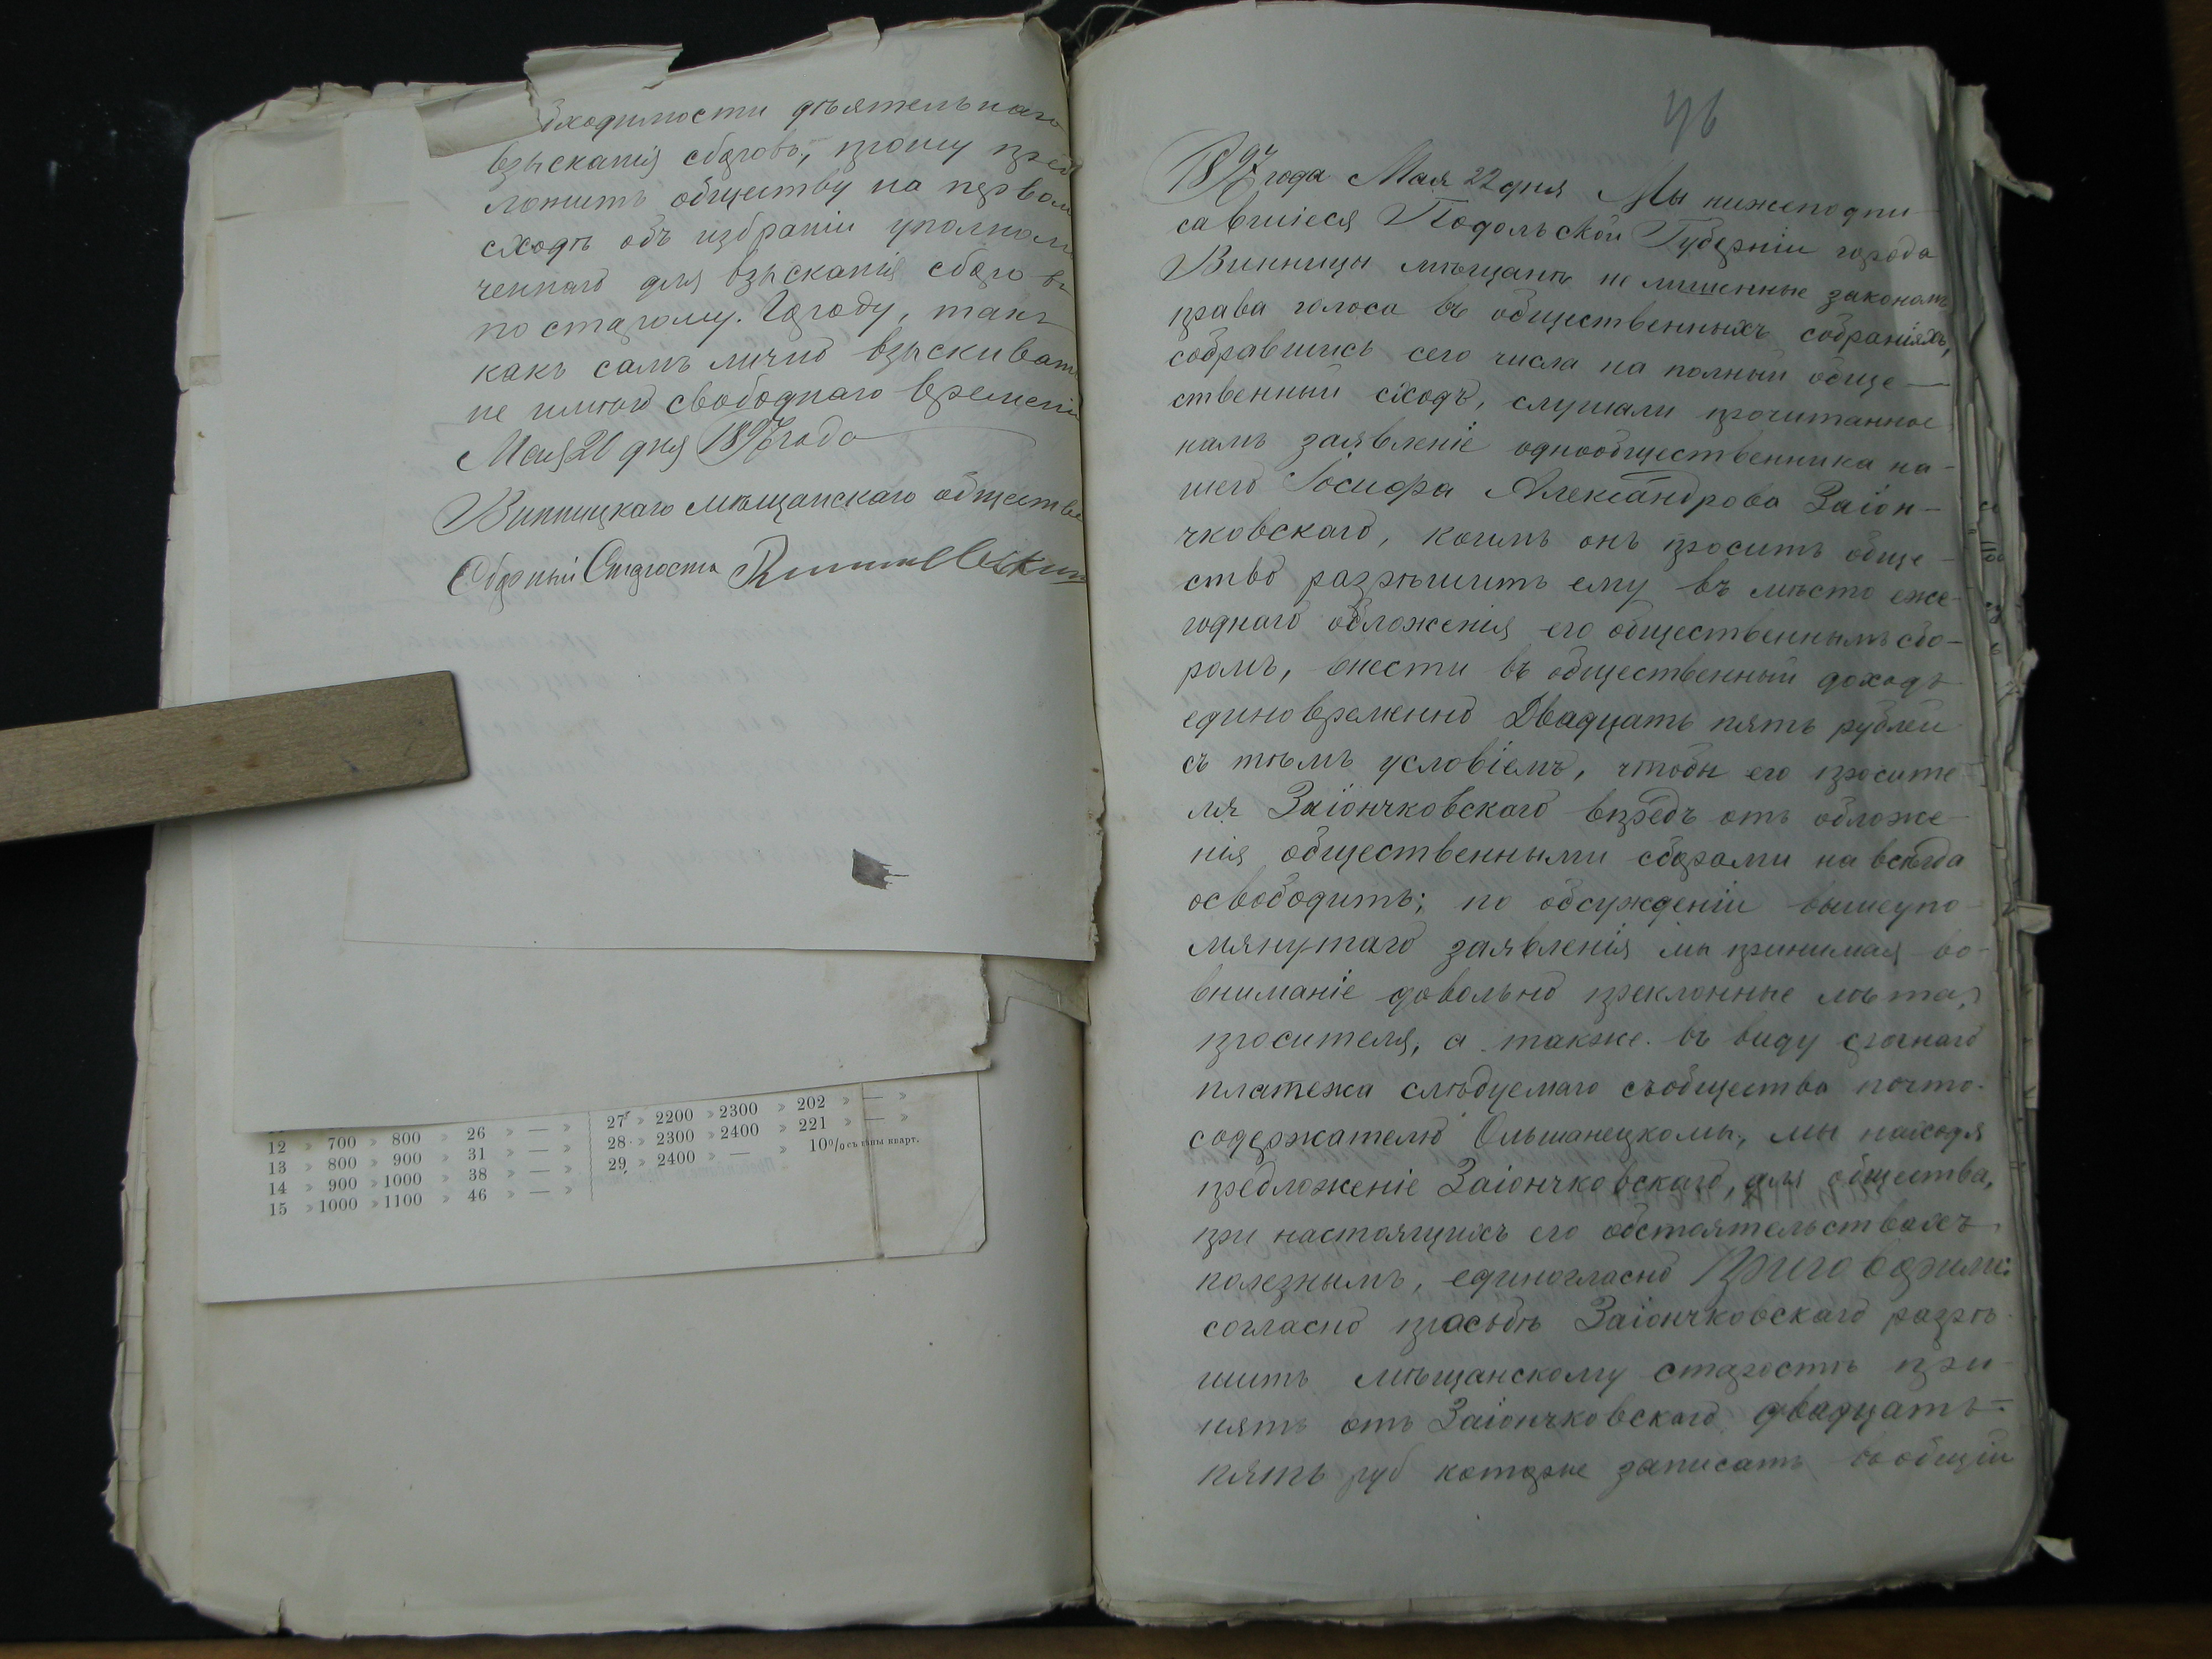 ходимости дѣятельнаго
взысканія сборовъ, прошу пред
ложить обществу на первомъ
сходѣ объ избраніи уполномо
ченнаго для взысканія сборовъ
по старому Городу, такъ
какъ самъ лично взыскивать
не имѣю свободнаго времени
Мая 20 дня 1897 года
Винницкаго мѣщанскаго общества
Сборный Староста
12 » 700 » 800 » 26 » — »
13 » 800 » 900 » 31 » — »
14 » 900 » 1000 » 38 » — »
15 » 1000 » 1100 » 46 » — »
27 » 2200 » 2300 » 202 » — »
28 » 2300 » 2400 » 221 » — »
29 » 2400 » — » 10% съ цѣны кварт.
46
1897 года Мая 22 дня Мы нижеподпи-
савшіеся Подольской Губерніи города
Винницы мѣщане не лишенные закономъ
права голоса въ общественныхъ собраніяхъ,
собравшись сего числа на полный обще-
ственный сходъ, слушали прочитанное
намъ заявленіе однообщественника на-
шего Іосифа Александрова Заіон-
чковскаго, коимъ онъ проситъ обще-
ство разрѣшить ему въ мѣсто еже-
годнаго обложенія его общественнымъ сбо-
ромъ, внести въ общественный доходъ
единовременно Двадцать пять рублей
съ тѣмъ условіемъ, чтобы его просите-
ля Заіончковскаго впредъ отъ обложе-
нія общественными сборами на всегда
освободить; по обсужденіи вышеупо-
мянутаго заявленія мы принимая во-
вниманіе довольно преклонные лѣта,
просителя, а также въ виду срочнаго
платежа слѣдуемаго съобщества почто-
содержателю Ольшанецкому, мы находя
предложеніе Заіончковскаго, для общества,
при настоящихъ его обстоятельствахъ
полезнымъ, единогласно Приговорили:
согласно просьбѣ Заіончковскаго разрѣ-
шить мѣщанскому старостѣ при-
нять отъ Заіончковскаго двадцать-
пять руб которые записать въ общій